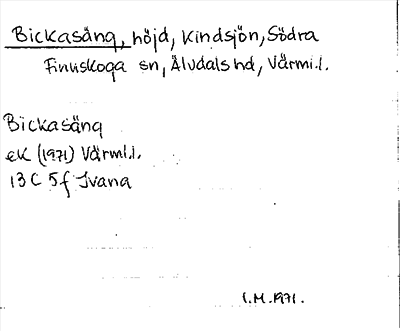 Bickasäng, höjd, Kindsjön, Södra
Finnskoga sn, Älvdals hd, Värml.l.
Bickasäng
eK (1971) Värml.l.
13 C 5f Ivana
I.M. 1971.